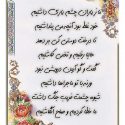 ما ز یاران چشم یاری داشتیم
خود غلط بود آنچه می پنداشتیم
تا درخت دوستی کی بر دهد
حالیا رفتیم و تخمی کاشتیم
گفت و گو آیین درویشی نبود
ورنه با تو ماجراها داشتیم
شیوه چشمت فریب جنگ داشت
ما خطا کردیم و صلح انگاشتیم